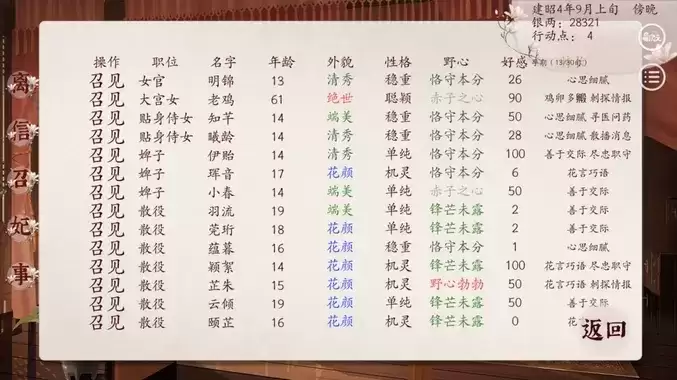 建昭4年9月上旬 傍晚
银两：28321
行动点： 4
操作 职位 名字 年龄 外貌 性格 野心 好感
召见 女官 明锦 13 清秀 稳重 恪守本分 26 心思细腻
召见 大宫女 老鸡 61 绝世 聪颖 赤子之心 90 鸡卵多 刺探情报
召见 贴身侍女 知芊 14 端美 稳重 恪守本分 50 心思细腻 寻医问药
召见 贴身侍女 曦龄 14 清秀 稳重 恪守本分 28 心思细腻 散播消息
召见 婢子 伊贻 14 清秀 单纯 恪守本分 100 善于交际 尽忠职守
召见 婢子 珲音 17 花颜 机灵 恪守本分 6 花言巧语
召见 婢子 小春 14 端美 单纯 赤子之心 50 善于交际
召见 散役 羽流 19 端美 单纯 锋芒未露 2 善于交际
召见 散役 莞珩 18 花颜 单纯 锋芒未露 2 善于交际
召见 散役 蕴暮 16 花颜 稳重 恪守本分 1 心思细腻
召见 散役 颖絮 14 花颜 机灵 锋芒未露 100 花言巧语 尽忠职守
召见 散役 芷朱 15 花颜 机灵 野心勃勃 50 花言巧语 刺探情报
召见 散役 云倾 19 花颜 单纯 锋芒未露 50 善于交际
召见 散役 颐芷 16 花颜 机灵 锋芒未露 0 花
返回
离
信
召
妃
事